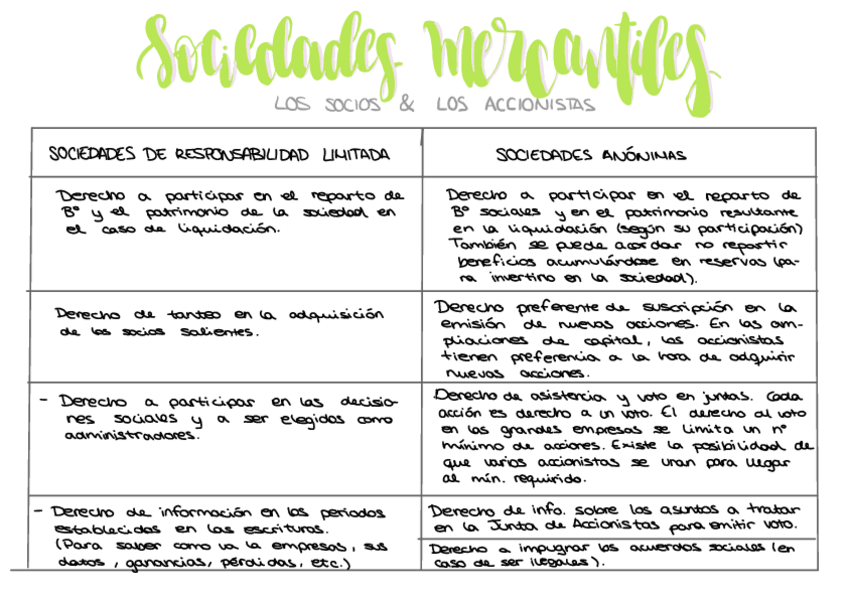 Sociedades Mercantiles
LOS SOCIOS & LOS ACCIONISTAS
SOCIEDADES DE RESPONSABILIDAD LIMITADA
SOCIEDADES ANÓNIMAS
Derecho a participar en el reparto de
Bº y el patrimonio de la sociedad en
el caso de liquidación.
Derecho a participar en el reparto de
Bº sociales y en el patrimonio resultante
en la liquidación (según su participación)
También se puede acordar no repartir
beneficios acumulándose en reservas (pa-
ra invertirlo en la sociedad).
Derecho de tanteo en la adquisición
de los socios salientes.
Derecho preferente de suscripción en la
emisión de nuevas acciones. En las am-
pliaciones de capital, los accionistas
tienen preferencia a la hora de adquirir
nuevas acciones.
- Derecho a participar en las decisio-
nes sociales y a ser elegidos como
administradores.
Derecho de asistencia y voto en juntas. Cada
acción es derecho a un voto. El derecho al voto
en las grandes empresas se limita un nº
mínimo de acciones. Existe la posibilidad de
que varios accionistas se unan para llegar
al mín. requirido.
- Derecho de información en los periodos
establecidos en las escrituras.
(Para saber como va la empresa, sus
datos, ganancias, pérdidas, etc.)
Derecho de info. sobre los asuntos a tratar
en la Junta de Accionistas para emitir voto.
Derecho a impugnar los acuerdos sociales (en
caso de ser ilegales).